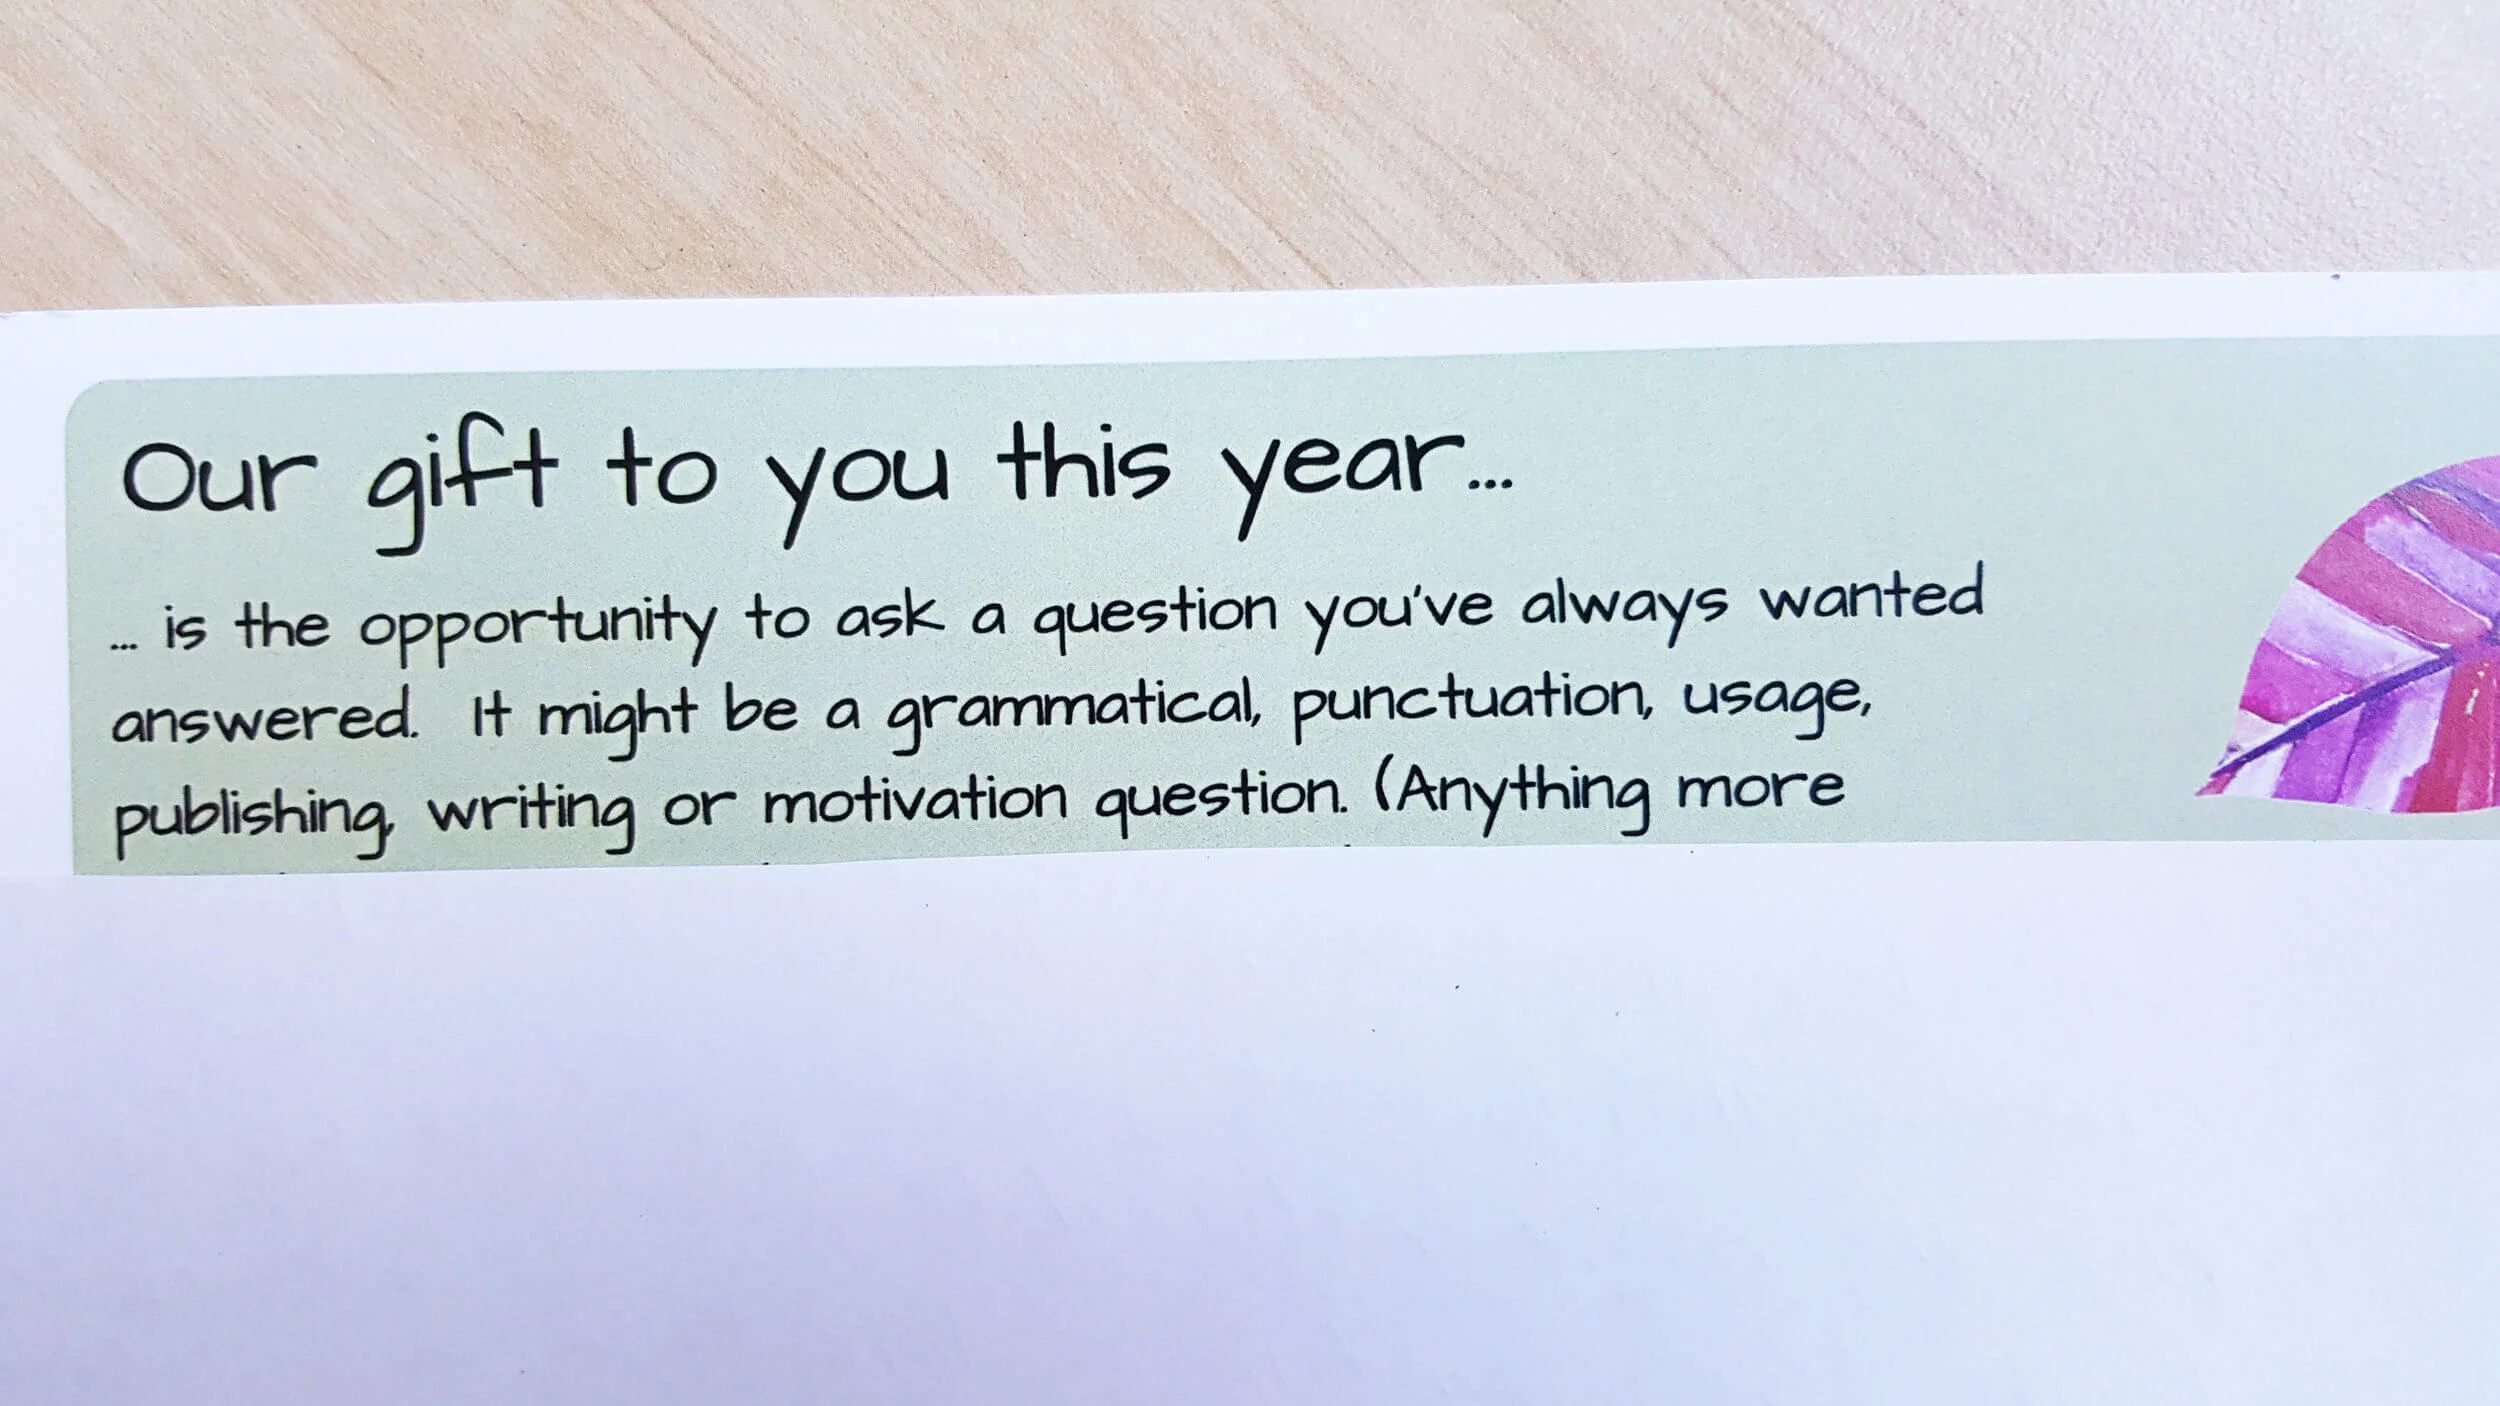 Our gift to you this year...
... is the opportunity to ask a question you've always wanted
answered. It might be a grammatical, punctuation, usage,
publishing, writing or motivation question. (Anything more